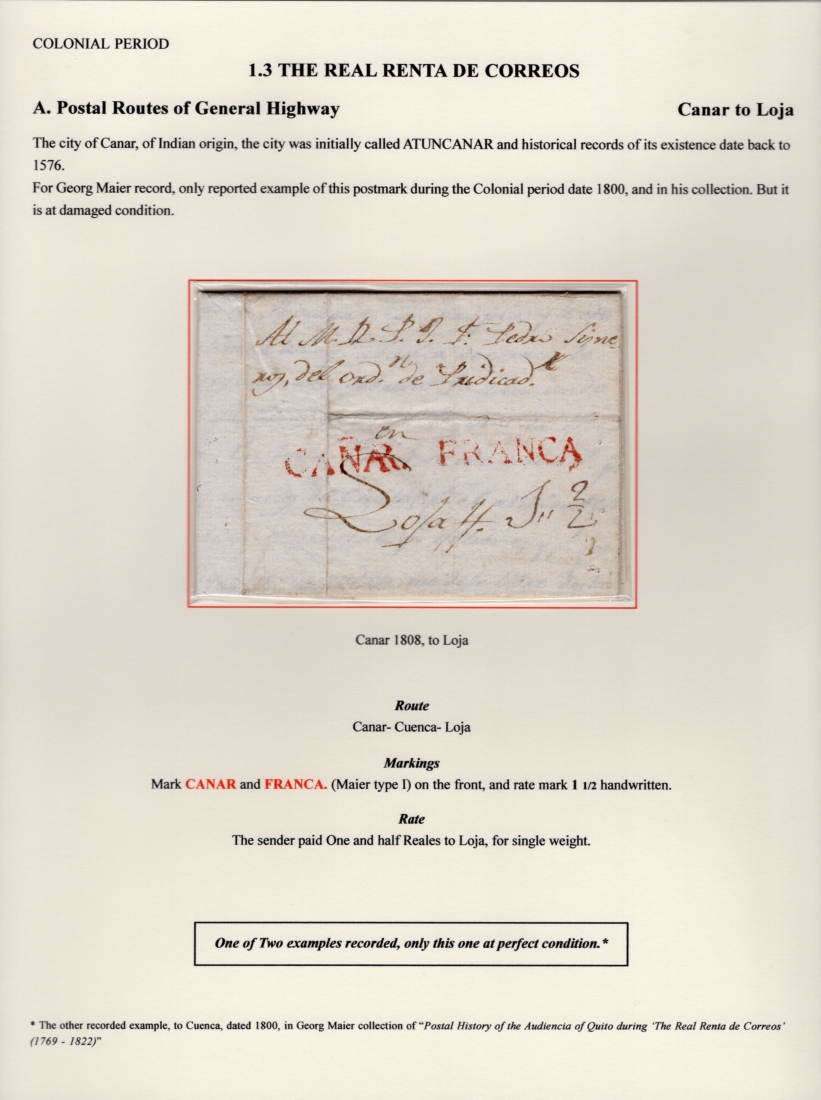 COLONIAL PERIOD
1.3 THE REAL RENTA DE CORREOS
A. Postal Routes of General Highway Canar to Loja
The city of Canar, of Indian origin, the city was initially called ATUNCANAR and historical records of its existence date back to
1576.
For Georg Maier record, only reported example of this postmark during the Colonial period date 1800, and in his collection. But it
is at damaged condition.
Al M. R. P. J. F. Pedro Sime
nos, del ord.n de Predicad.
en
CAÑAR. FRANCA
Loja
Canar 1808, to Loja
Route
Canar- Cuenca- Loja
Markings
Mark CANAR and FRANCA. (Maier type I) on the front, and rate mark 1 1/2 handwritten.
Rate
The sender paid One and half Reales to Loja, for single weight.
One of Two examples recorded, only this one at perfect condition.*
* The other recorded example, to Cuenca, dated 1800, in Georg Maier collection of "Postal History of the Audiencia of Quito during 'The Real Renta de Correos'
(1769 - 1822)"